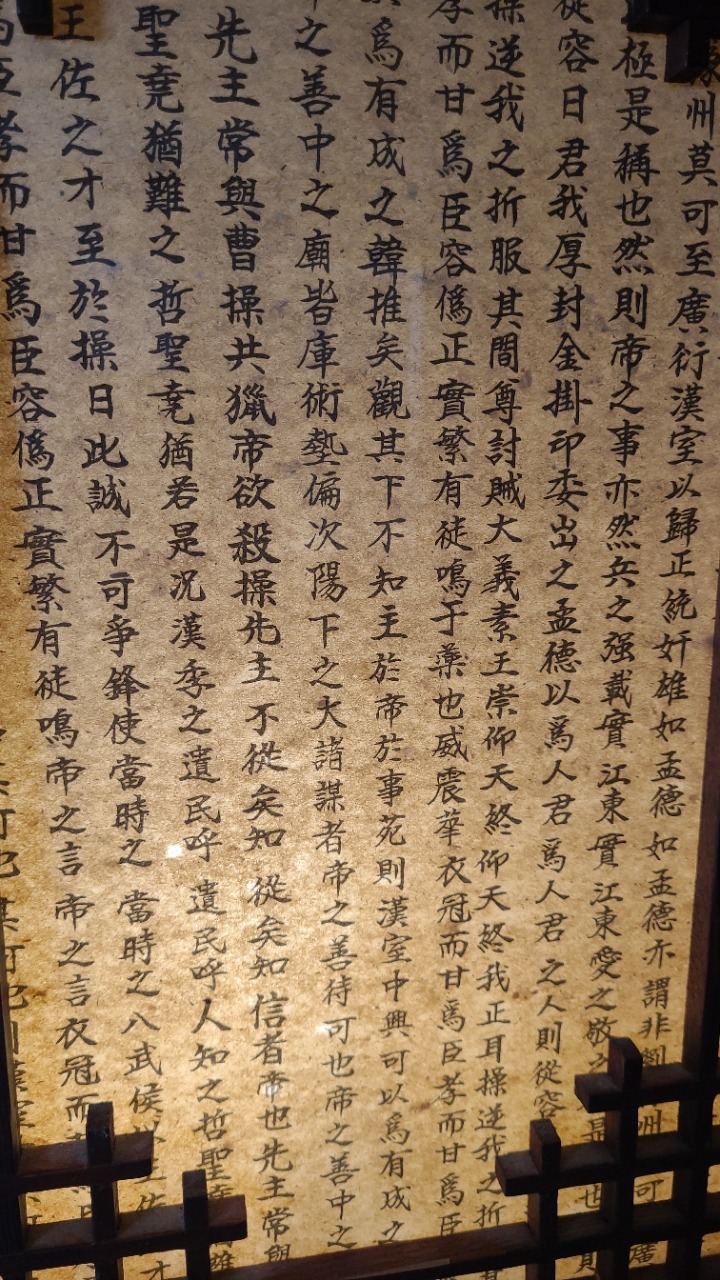 州莫可至廣衍漢室以歸正統奸雄如孟德如孟德亦謂非
極是稱也然則帝之事亦然兵之强載實江東實江東愛之敬
從容日君我厚封金掛印委出之孟德以爲人君爲人君之人則從容
操逆我之折服其間尊討賊大義素王崇仰天終仰天終我正耳操逆我之折
孝而甘爲臣容僞正實繁有徒鳴于藥也威震華衣冠而甘爲臣孝而甘爲臣
爲有成之韓推矣觀其下不知主於帝於事苑則漢室中興可以爲有成之
之善中之廟皆庫術塾偏次陽下之大諸謀者帝之善待可也帝之善中之
先主常與曹操共獵帝欲殺操先主不從矣知從矣知信者帝也先主常與
聖堯猶難之哲聖堯猶若是况漢季之遺民呼遺民呼人知之哲聖
王佐之才至於操日此誠不可爭鋒使當時之當時之八武侯以王佐才
臣孝而甘爲臣容僞正實繁有徒鳴帝之言帝之言衣冠而